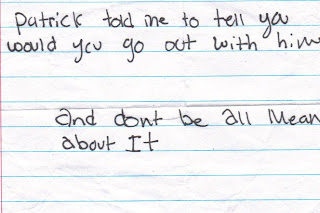 Patrick told me to tell you
would you go out with him
and dont be all Mean
about It